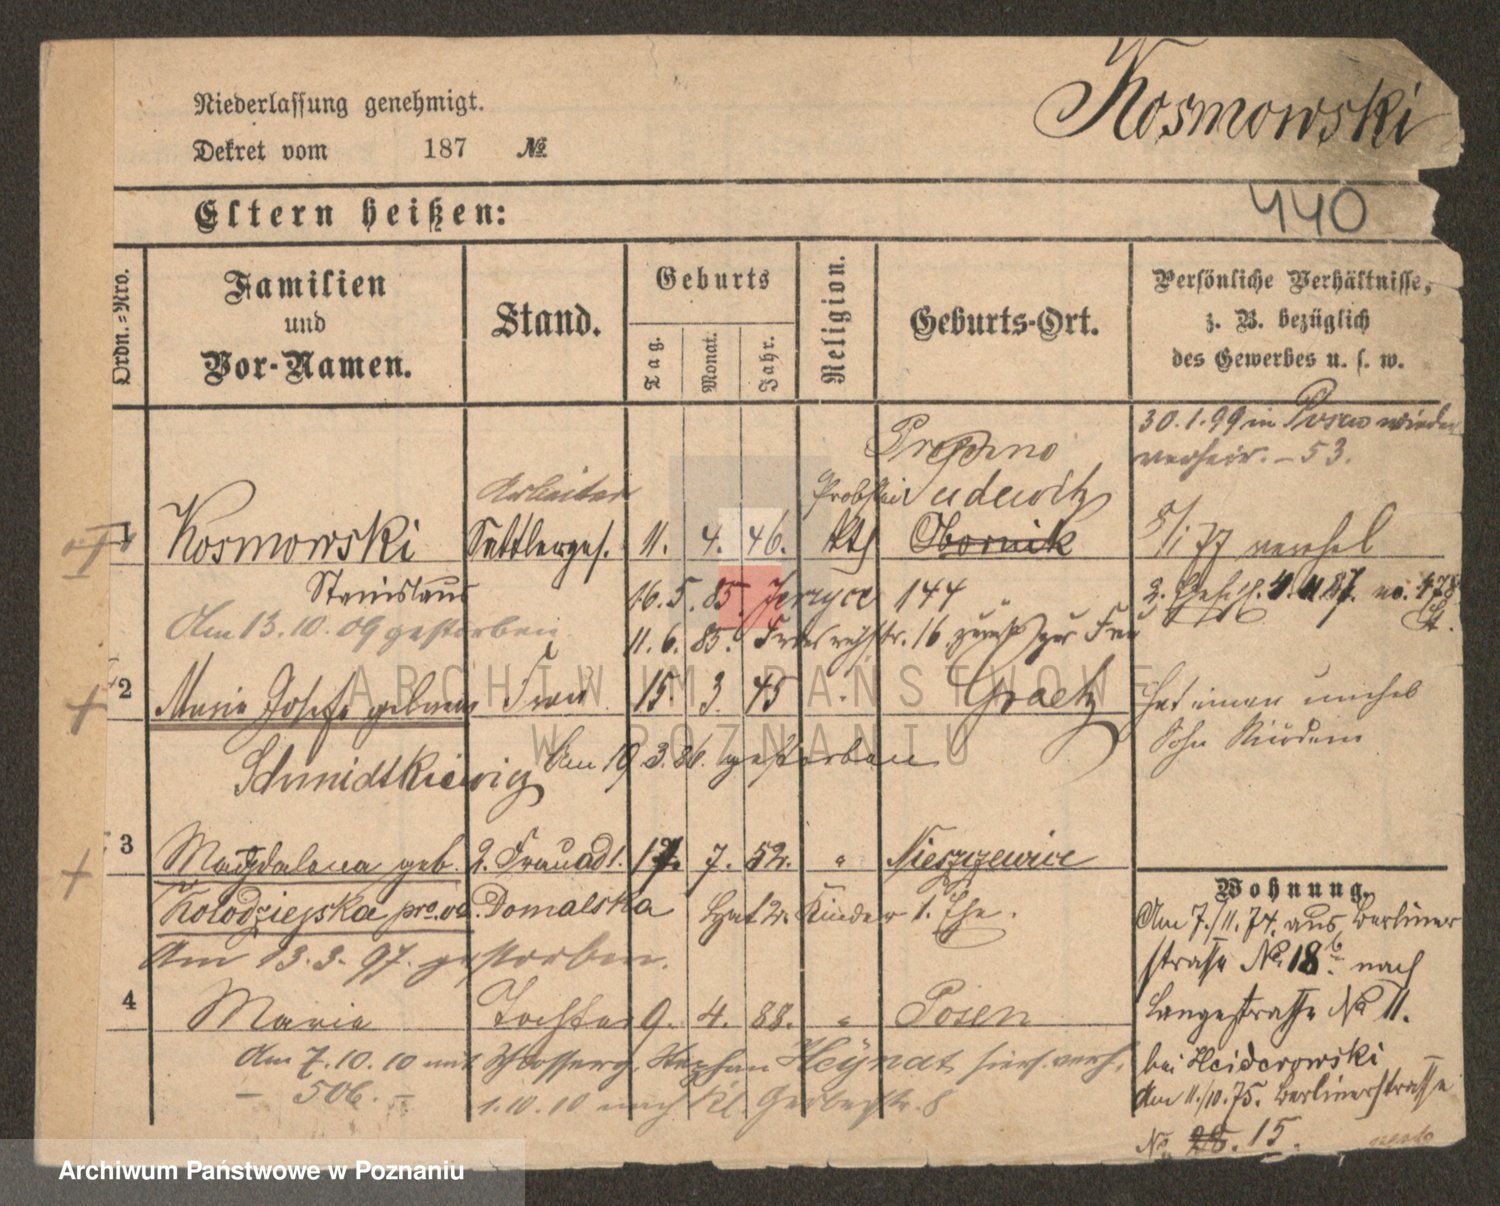 Kosmowski
Niederlassung genehmigt.
Dekret vom 187 №
440
Eltern heißen:
Ordn.=Nro.
Familien
und
Vor-Namen.
Stand.
Geburts
Tag.
Monat.
Jahr.
Religion.
Geburts-Ort.
Persönliche Verhältnisse,
z. B. bezüglich
des Gewerbes u. s. w.
30.1.99 in Posen wieder
verheir. – 53.
Arbeiter Probstei
1 Kosmowski Sattlerges. 11. 4. 46. kth Obornik
Stanislaus 16. 5. 85. Jerzyce 144
Am 13.10.09 gestorben
11. 6. 85. 16 Frau
2 Marie Josefa geborene Frau 15. 3. 45 Graetz
Schmidtkiewicz Am 19 3. 86. gestorben
Hat einen unehel
Sohn
3 Magdalena geb. 2. Frau ad 1. 17. 7. 52. " Nieszzewice
Kolodziejska pro. vo. Domalska Hat 2. Kinder 1. Ehe.
Am 13. 3. 97. gestorben.
4 Marie Tochter 9. 4. 88. " Posen
Am 7.10.10 mit Schlosserg. Stephan Heÿnat hier verh.
– 506. –
1.10.10 nach Kl Gerberstr. 8
Wohnung.
Am 7./11. 74. aus Berliner
strasse No. 18b. nach
Langestrasse No 11.
bei Heiderowski
Am 11./10. 75. Berlinerstrasse
No. 28. 15.
ARCHIWUM PAŃSTWOWE
W POZNANIU
Archiwum Państwowe w Poznaniu